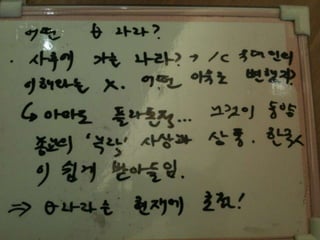 어떤 θ 나라?
· 사후에 가는 나라? → /c 국대인의
이해와는 x. 어떤 이유로 변했지?
↳ 아마도 플라톤적... 그것이 동양
종교의 '극락' 사상과 상통. 한국人
이 쉽게 받아들임.
⇒ θ나라는 현재에 초점!